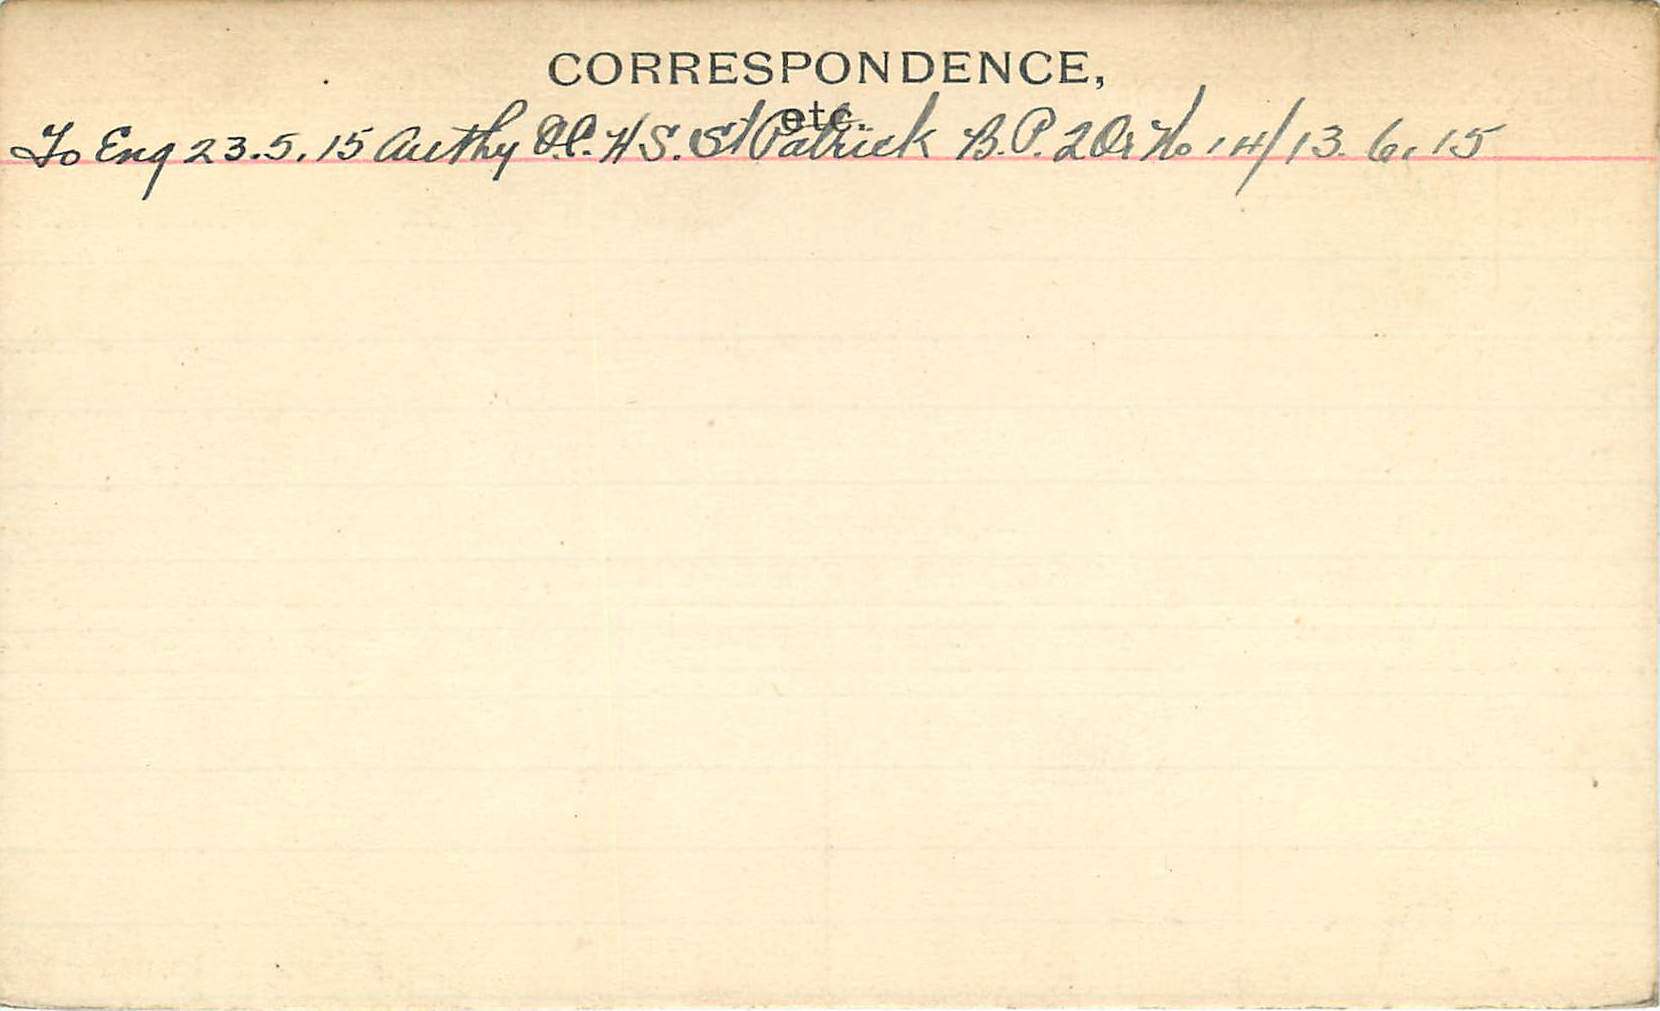 CORRESPONDENCE,
etc.
To Eng 23.5.15 Authy O.C. H.S. St Patrick B.P. 2 Or No 14/13.6.15